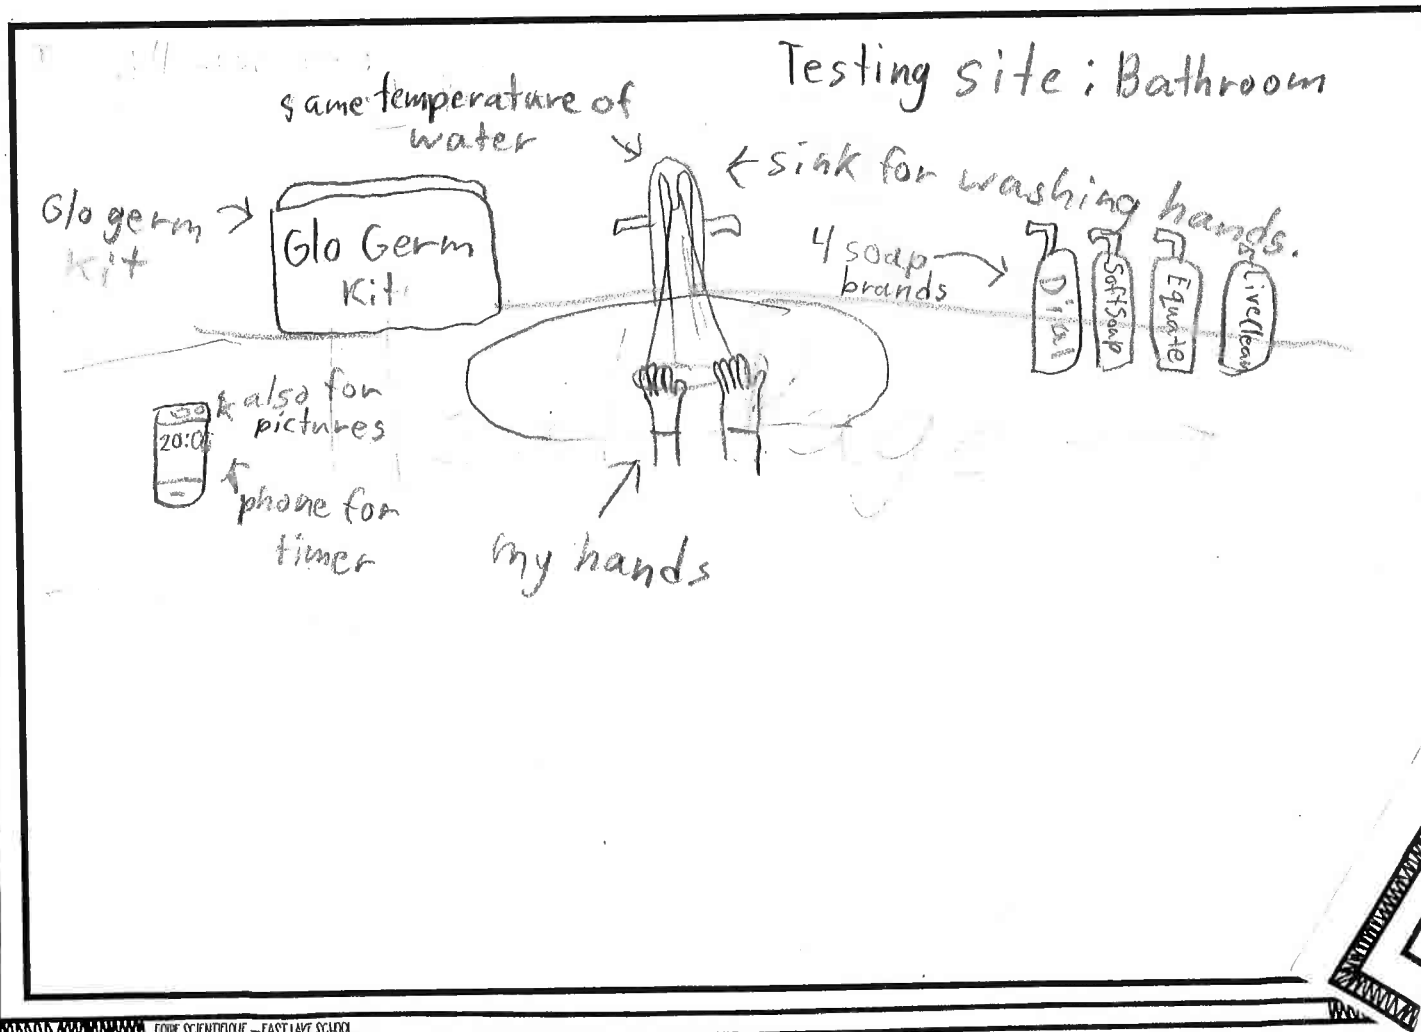 Testing site: Bathroom
same temperature of
water
sink for washing hands.
Glo germ
kit
Glo Germ
Kit
4 soap
brands
Dial
SoftSoap
Equate
LiveClean
also for
pictures
20:0
phone for
timer
my hands
FOIRE SCIENTIFIQUE - EAST LAKE SCHOOL